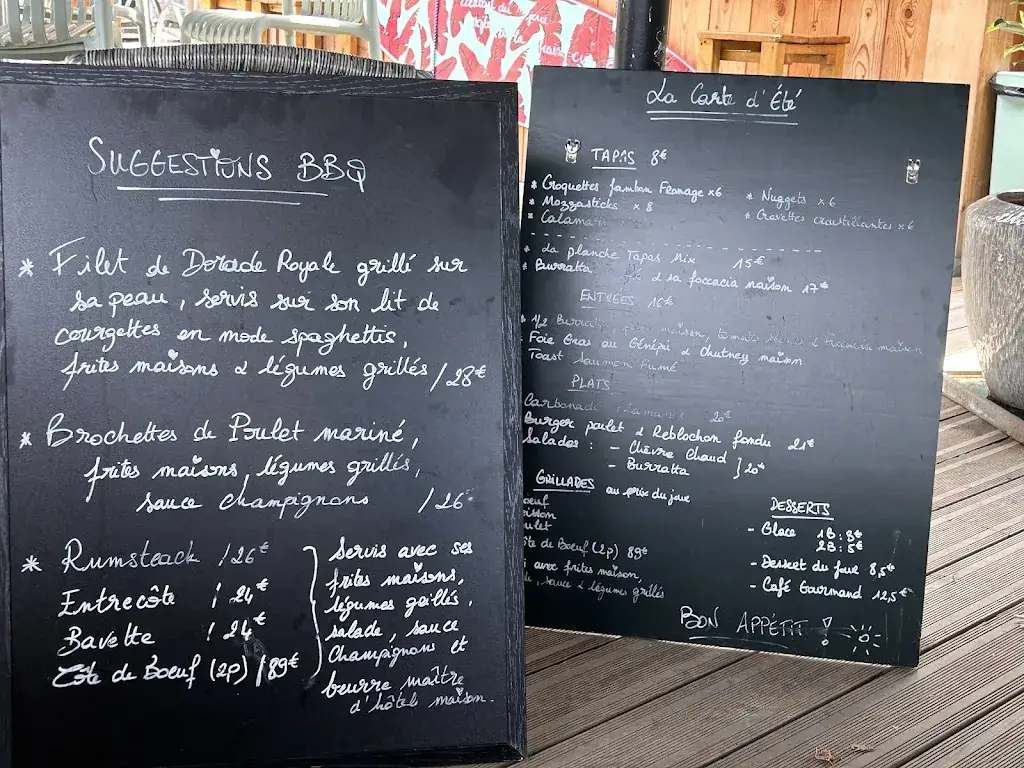 SUGGESTIONS BBQ
* Filet de Dorade Royale grillé sur
sa peau, servis sur son lit de
courgettes en mode spaghettis,
frites maisons & légumes grillés /28€
* Brochettes de Poulet mariné,
frites maisons, légumes grillés,
sauce champignons /26€
* Rumsteack /26€
Entrecôte / 24€
Bavette / 24€
Côte de Boeuf (2p) /89€
Servis avec ses
frites maisons,
légumes grillés,
salade, sauce
Champignons et
beurre maître
d'hôtel maison.
La Carte d'Été
TAPAS 8€
* Croquettes Jambon Fromage x6
* Mozzasticks x 8
* Calamars
* Nuggets x 6
* Crevettes croustillantes x6
* La planche Tapas Mix 15€
* Burratta & sa foccacia maison 17€
ENTRÉES 16€
* 1/2 Burratta maison, tomates & foccacia maison
Foie Gras au Génépi & Chutney maison
Toast Saumon Fumé
PLATS
Carbonade Flamande 20€
Burger poulet & Reblochon fondu 21€
Salades : - Chèvre Chaud
- Burratta } 20€
GRILLADES au prix du jour
oeuf
oisson
ulet
te de Boeuf (2p) 89€
avec frites maison,
, sauce & légumes grillés
DESSERTS
- Glace 1B : 3€
2B : 5€
- Dessert du jour 8,5€
- Café Gourmand 12,5€
BON APPÉTIT !